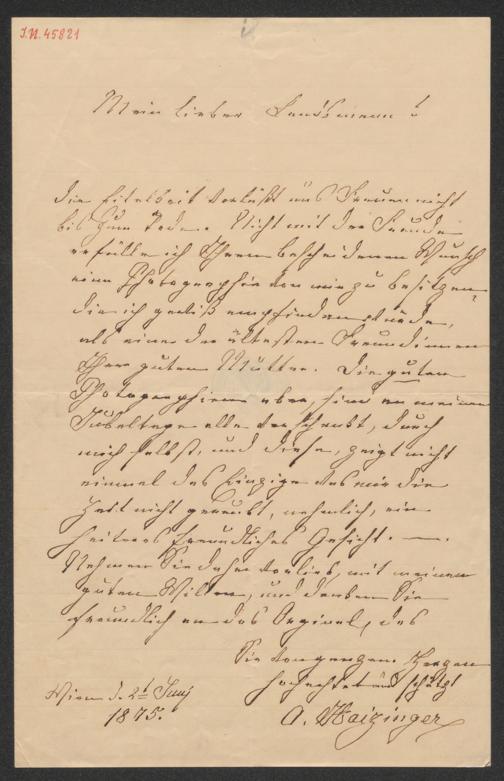 I.N. 45821
Mein lieber Landsmann!
Die Eitelkeit verläßt uns Frauen nicht
bis zum Tode. Nicht mit der Freude
erfülle ich Ihren bescheidenen Wunsch
eine Photographie von mir zu besitzen,
die ich gewiß empfinden würde,
als eine der ältesten Freundinnen
Ihrer guten Mutter. Die guten
Photographien aber, sind an meinem
Jubeltage alle verschenkt, durch
mich selbst, und diese, zeigt nicht
einmal das Einzige das mir die
Zeit nicht geraubt, nehmlich, ein
heiteres freundliches Gesicht. —
Nehmen Sie daher vorlieb, mit meinem
guten Willen, und denken Sie
freundlich an das Orginal, das
Sie von ganzem Herzen
hochachtet und schätzt
Wien d. 2t Juny
1875.
A. Haizinger